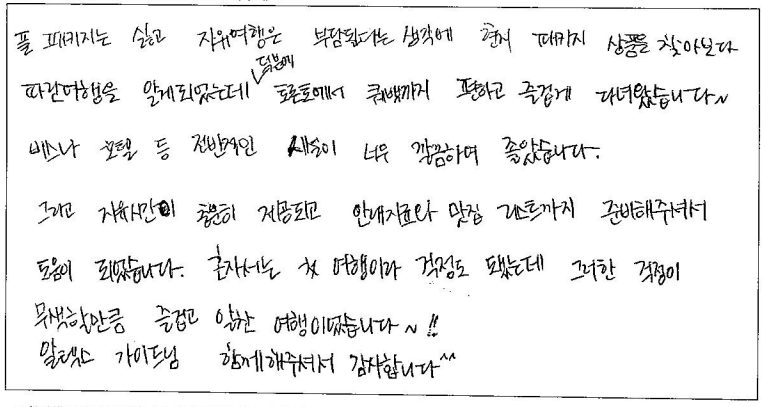 풀 패키지는 싫고 자유여행은 부담된다는 생각에 현지 패키지 상품을 찾아보다
파란여행을 알게되었는데 덕분에 토론토에서 퀘백까지 편하고 즐겁게 다녀왔습니다~
버스나 호텔 등 전반적인 시설이 너무 깔끔하여 좋았습니다.
그리고 자유시간이 충분히 제공되고 안내지도와 맛집 리스트까지 준비해주셔서
도움이 되었습니다. 혼자서는 첫 여행이라 걱정도 됐는데 그러한 걱정이
무색할만큼 즐겁고 알찬 여행이었습니다~!!
알렉스 가이드님 함께해주셔서 감사합니다^^